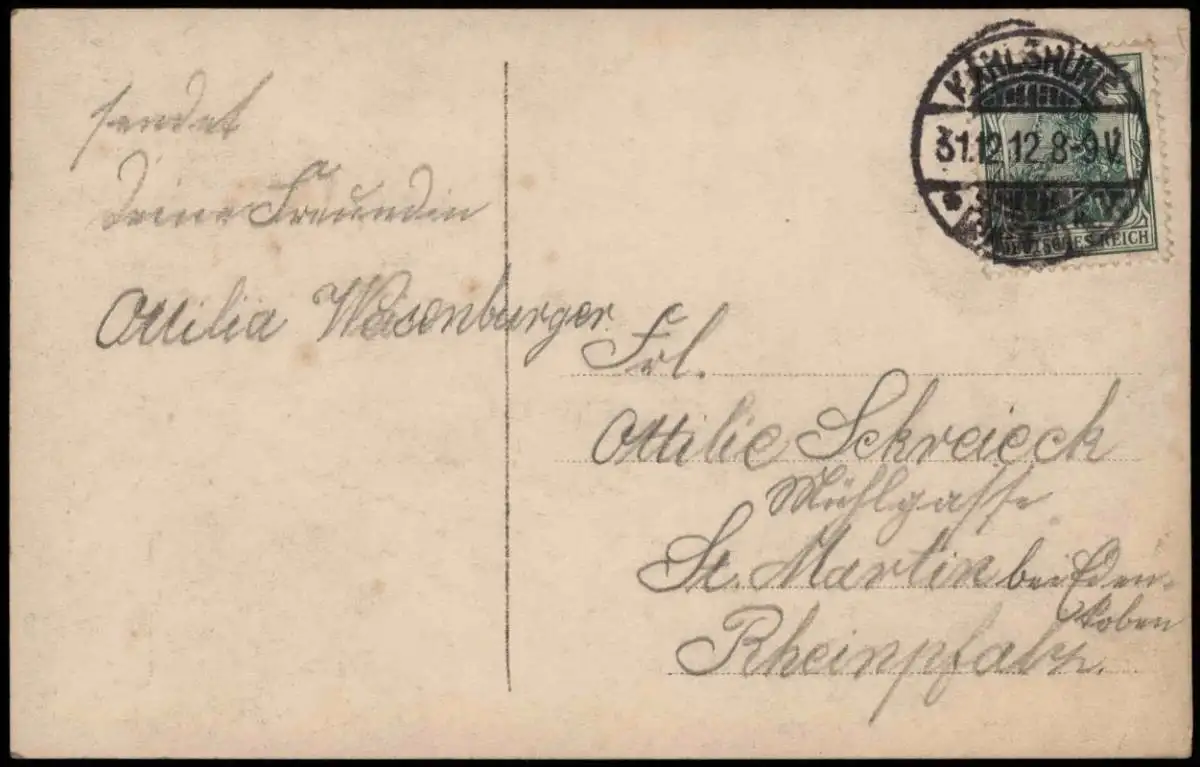 sendet
Deine Freundin
Ottilia Weisenburger
KARLSRUHE
31.12.12.8-9V.
DEUTSCHES REICH
Frl.
Ottilie Schreieck
Mühlgasse
St. Martin bei Eden-
koben
Rheinpfalz.